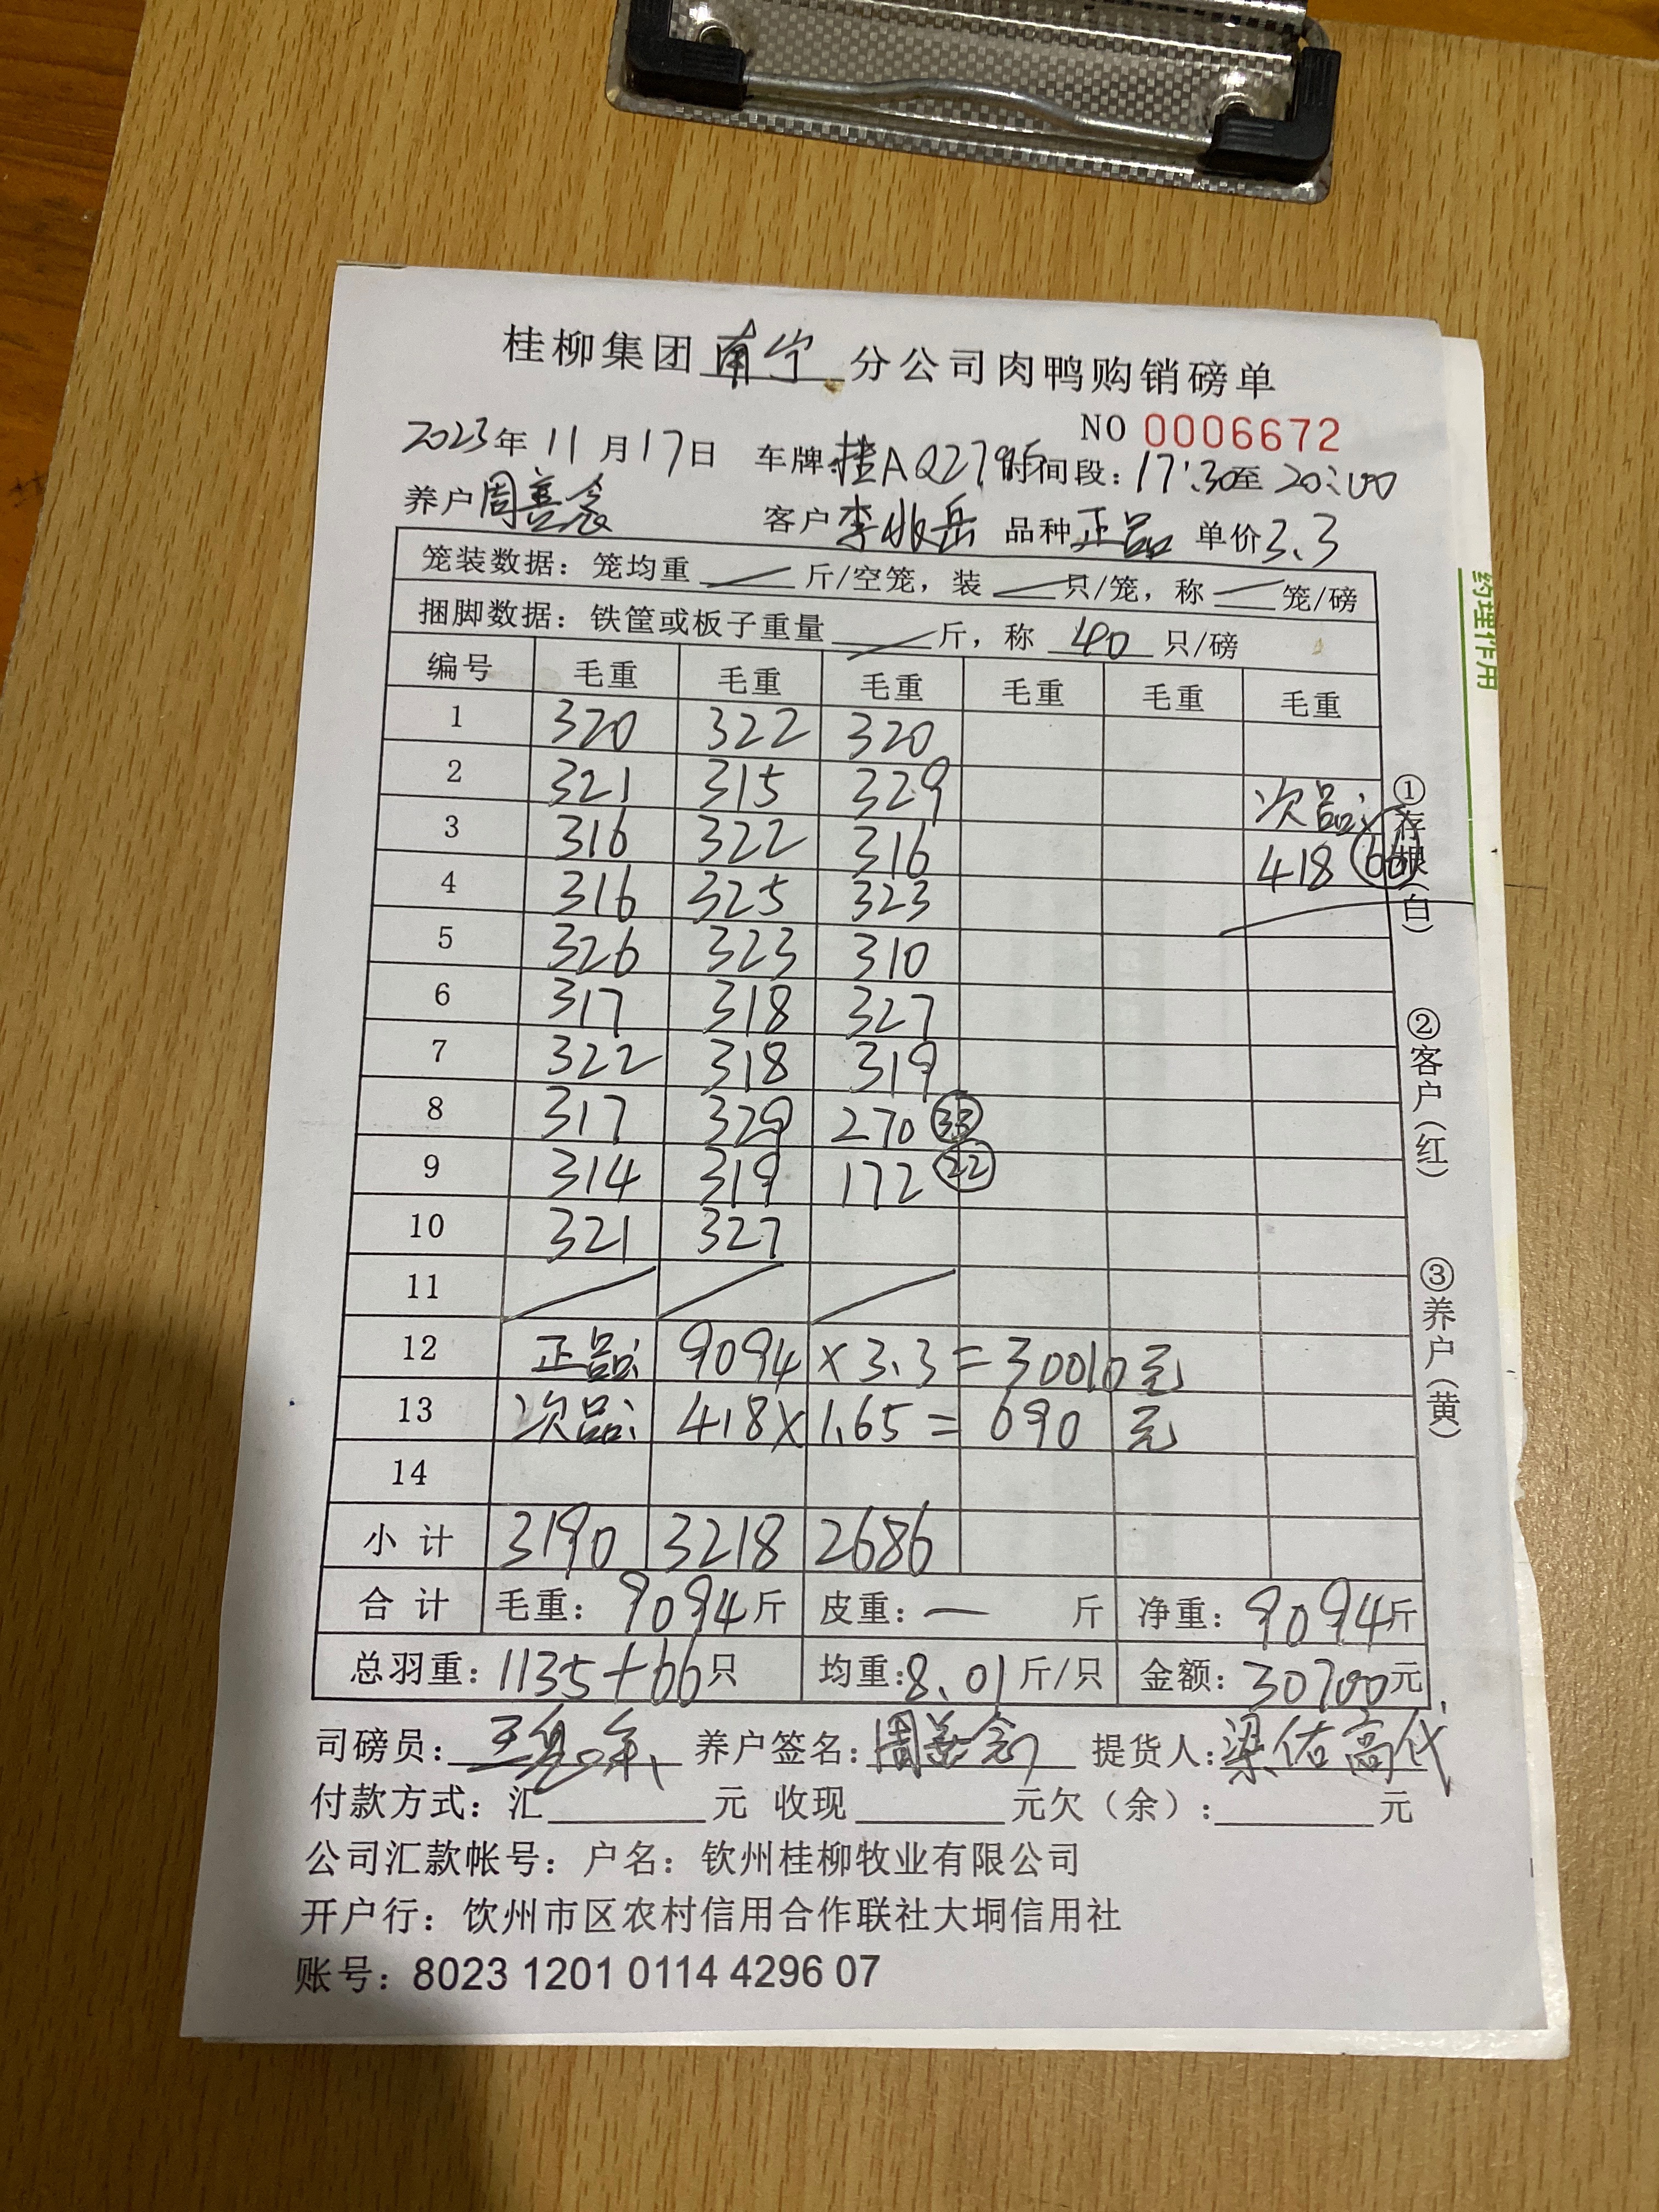 桂柳集团南宁分公司肉鸭购销磅单
NO 0006672
2023年11月17日 车牌:桂AQ2795 时间段:17:30至20:00
养户周善念 客户李 岳 品种正品 单价3.3
笼装数据:笼均重 斤/空笼,装 只/笼,称 笼/磅
捆脚数据:铁筐或板子重量 斤,称 40 只/磅
编号 毛重 毛重 毛重 毛重 毛重 毛重
1 320 322 320
2 321 315 329 次品:
3 316 322 316 418 66
4 316 325 323
5 326 323 310
6 317 318 327
7 322 318 319
8 317 329 270 33
9 314 319 172 22
10 321 327
11
12 正品: 9094 × 3.3 = 30010元
13 次品: 418×1.65 = 690 元
14
小计 3190 3218 2686
合计 毛重:9094斤 皮重:— 斤 净重:9094斤
总羽重:1135+66只 均重:8.01斤/只 金额:30700元
司磅员: 养户签名:周善念 提货人:梁佑高代
付款方式:汇 元 收现 元欠(余): 元
公司汇款帐号:户名:钦州桂柳牧业有限公司
开户行:饮州市区农村信用合作联社大垌信用社
账号:8023 1201 0114 4296 07
①存根(白)
②客户(红)
③养户(黄)
药理作用